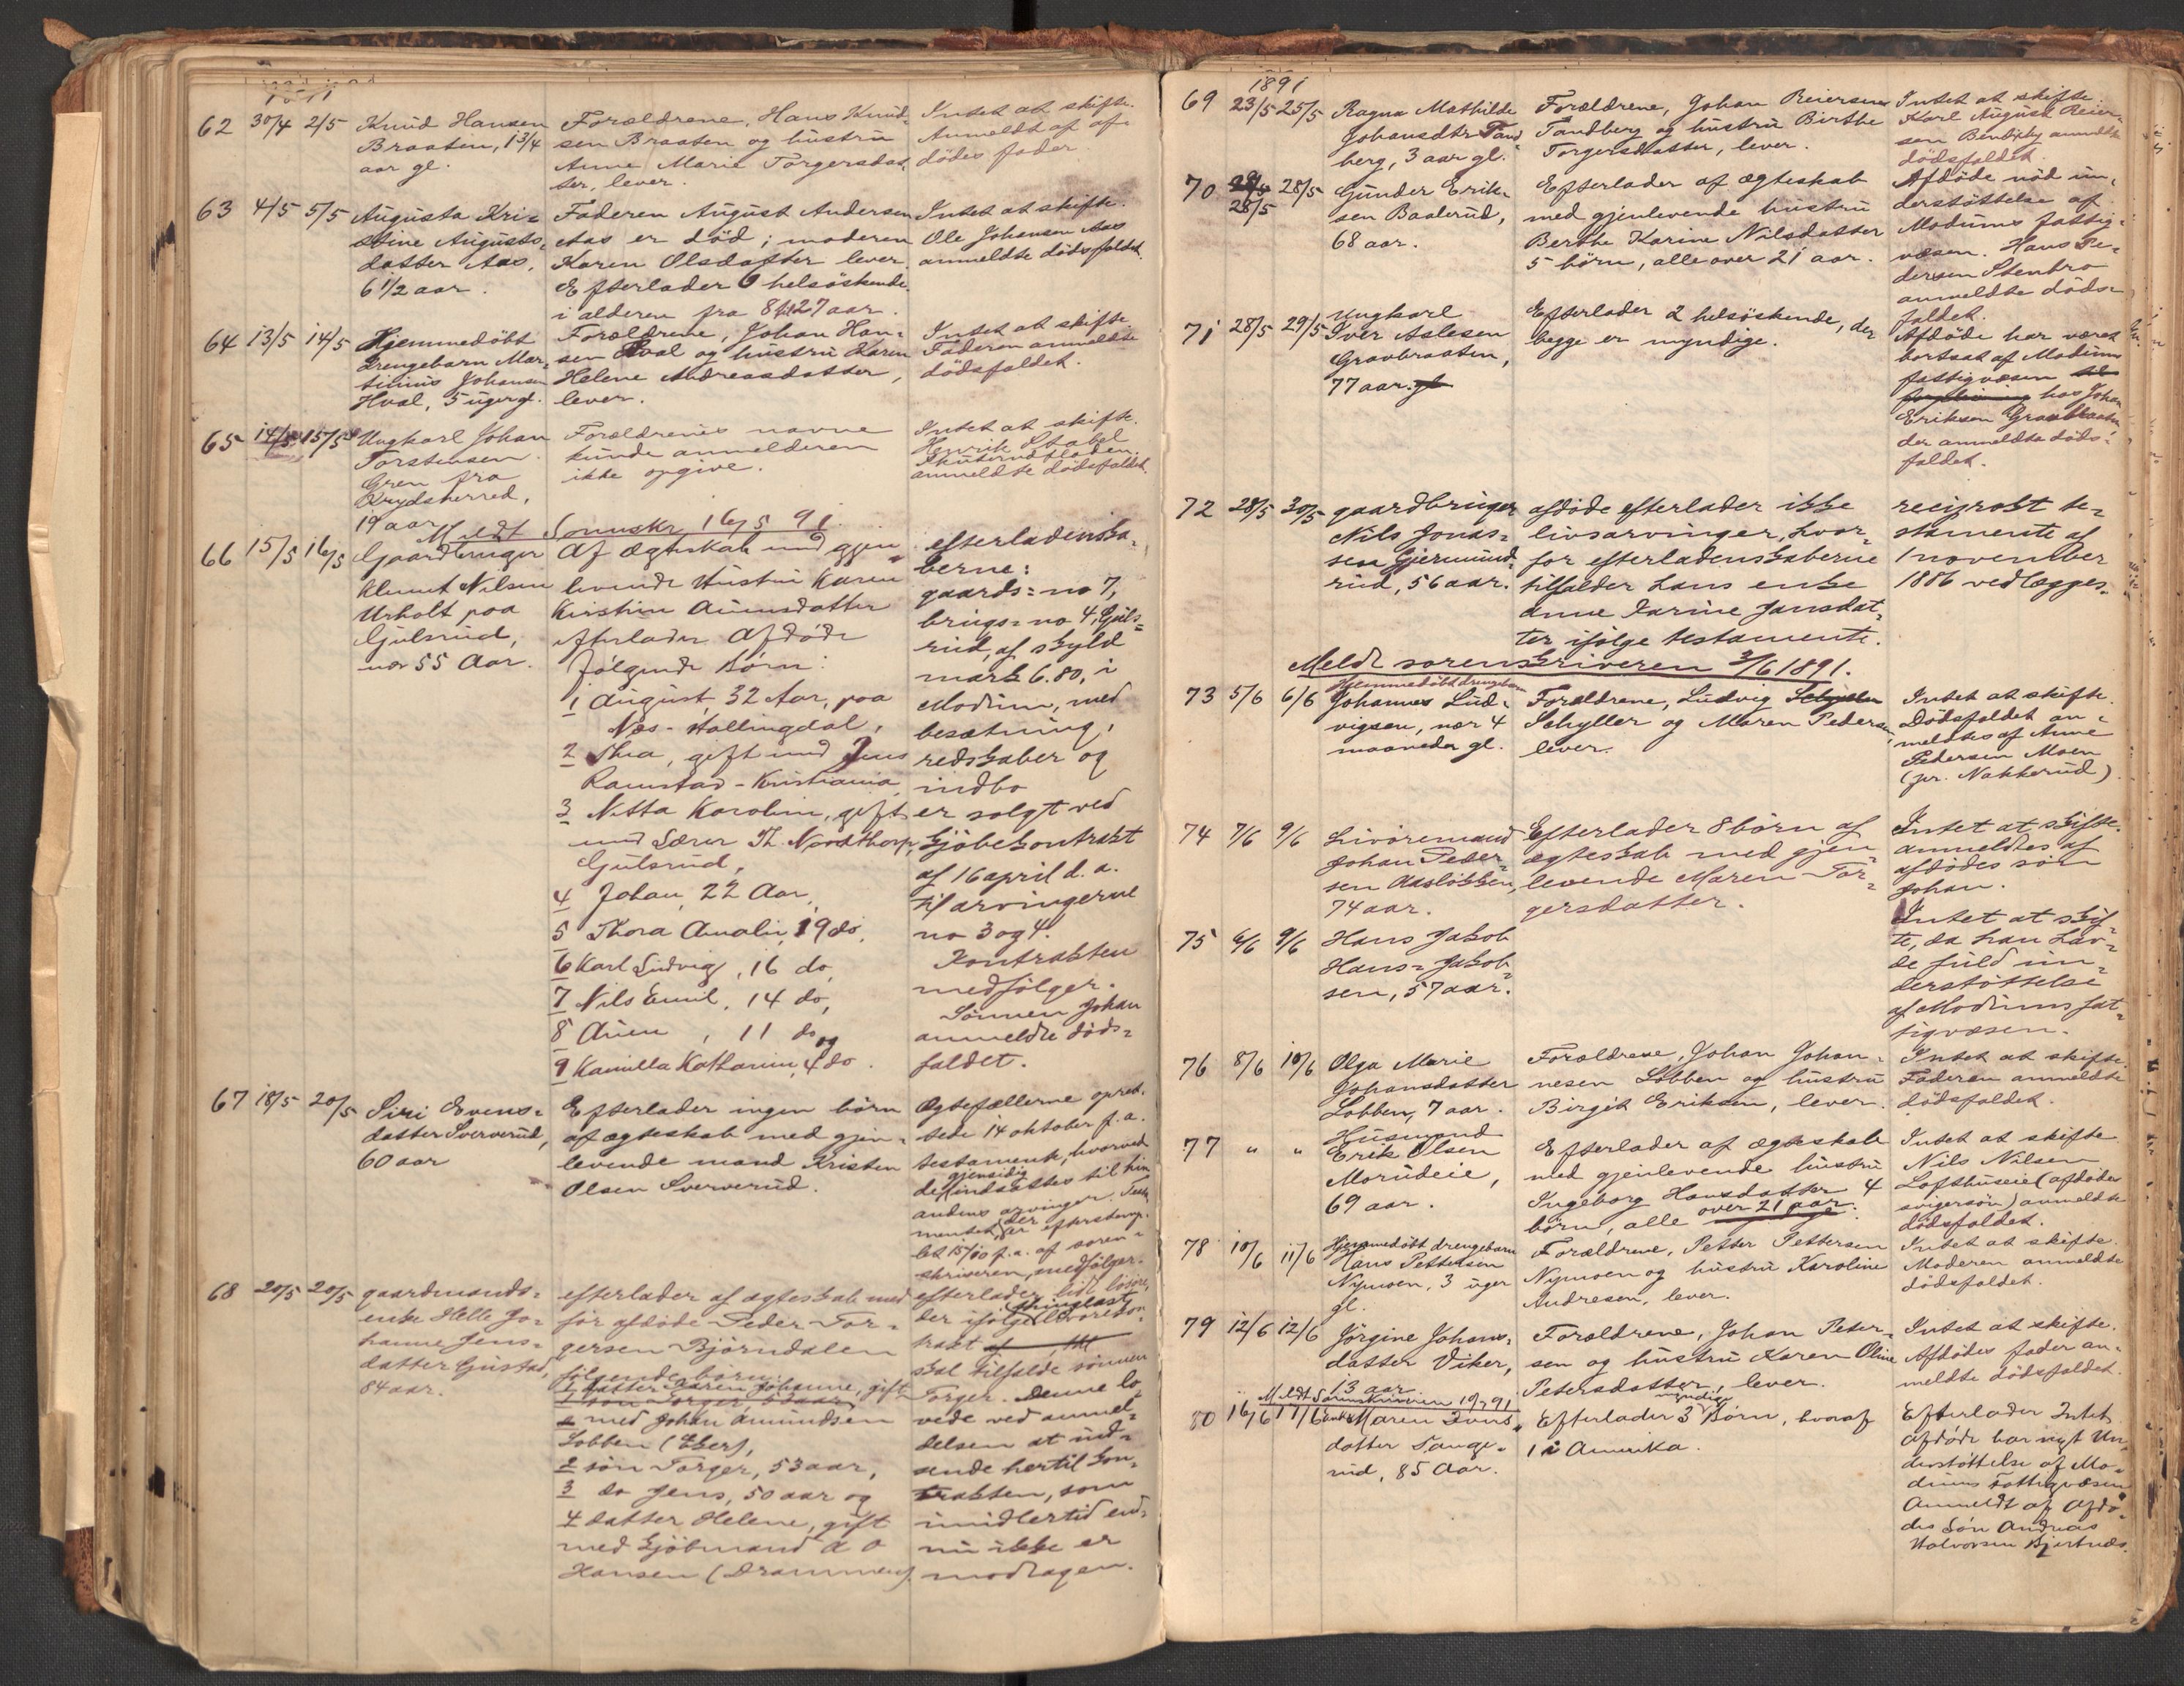 1891
62 30/4 2/5 Knud Hansen
Braaten, 1 3/4
aar gl.
Forældrene, Hans Knud-
sen Braaten og hustru
Anne Marie Torgersdat-
ter, lever.
Intet at skifte.
Anmeldt af af-
dödes fader.
63 4/5 5/5 Augusta Kri-
stine Augusts-
datter Aas,
6 1/2 aar.
Faderen August Andersen
Aas er död; moderen
Karen Olsdatter lever.
Efterlader 6 helsöskende
i alderen fra 8 til 27 aar.
Intet at skifte.
Ole Johansen Aas
anmeldte dödsfaldet.
64 13/5 14/5 Hjemmedöbt
Drengebarn Mar-
tinius Johansen
Hval, 5 uger gl.
Forældrene, Johan Han-
sen Hval og hustru Karen
Helene Andreasdatter,
lever.
Intet at skifte
Faderen anmeldte
dödsfaldet.
65 14/5 15/5 Ungkarl Johan
Torstensen
Gren fra
Krydsherred,
19 aar
Forældrenes navne
kunde anmelderen
ikke opgive.
Intet at skifte.
Henrik Stabel
anmeldte dödsfaldet.
Meldt Sorenskr. 16/5 91.
66 15/5 16/5 Gaardbruger
Klemet Nilsen
Urholt paa
Gulsrud,
nær 55 Aar.
Af ægteskab med gjen-
levende Hustru Karen
Kirstine Auensdatter
efterlader Afdöde
fölgende Börn:
1 August, 32 Aar, paa
Næs - Hallingdal,
2 Thea, gift med Jens
Ramstad - Kristiania,
3 Netta Karoline, gift
med Lærer Th. Nordthorp,
Gulsrud,
4 Johan, 22 Aar,
5 Thora Amalie, 19 do,
6 Karl Ludvig, 16 do,
7 Nils Emil, 14 do,
8 Auen, 11 do, og
9 Kamilla Katharine, 4 do.
efterladenska-
berne:
gaards=no 7,
brugs=no 4, Guls=
rud, af skyld
mark 6.80, i
Modum, med
besætning,
redskaber og
indbo
er solgt ved
kjöbekontrakt
af 16 april d. a.
til arvingerne
no 3 og 4.
Kontrakten
medfölger.
Sönnen Johan
anmeldte döds-
faldet.
67 18/5 20/5 Siri Evens-
datter Sververud,
60 aar
Efterlader ingen börn
af ægteskab med gjen-
levende mand Kristen
Olsen Sververud.
Ægtefællerne opret-
tede 14 oktober f. a.
testamente, hvorved
de gjensidig indsattes til hin
andens arvinger. Testa
mentet, der er efterstemp-
let 15/10 f. a. af soren-
skriveren, medfölger.
68 20/5 20/5 gaardmands-
enke Helle Jo-
hanne Jens-
datter Gustad,
84 aar.
efterlader af ægteskab med
för afdöde Peder Tor-
gersen Björndalen
fölgende börn:
1 datter Karen Johanne, gift
1 sön Torger 53 aar
med Johan Amundsen
Lobben (Eker),
2 sön Torger, 53 aar,
3 do Jens, 50 aar og
4 datter Helene, gift
med kjöbmand A O
Hansen (Drammen).
efterlader lidt lösöre,
der ifölge thinglæst livörekon-
trakt
skal tilfalde sönnen
Torger. Denne lo-
vede ved anmel-
delsen at ind-
sende hertil kon-
trakten, som
imidlertid end-
nu ikke er
modtagen.
1891
69 23/5 25/5 Ragna Mathilde
Johansdtr Tand-
berg, 3 aar gl.
Forældrene, Johan Reiersen
Tandberg og hustru Birthe
Torgersdatter, lever.
Intet at skifte.
Karl August Reier-
sen anmeldte
dödsfaldet.
70 28/5 28/5 Gunder Erik-
sen Baalerud,
68 aar.
Efterlader af ægteskab
med gjenlevende hustru
Berthe Karine Nilsdatter
5 börn, alle over 21 aar.
Afdöde nöd un-
derstöttelse af
Modums fattig-
væsen. Hans Pe-
dersen Stenbro
anmeldte döds-
faldet.
71 28/5 29/5 Ungkarl
Iver Aslesen
Gravbraaten,
77 aar. gl
Efterlader 2 helsöskende, der
begge er myndige.
Afdöde har været
bortsat af Modums
fattigvæsen
hos Johan
Eriksen Gravbraaten
der anmeldte döds-
faldet.
72 28/5 30/5 gaardbruger
Nils Jonas-
sen Gjermund-
rud, 56 aar.
afdöde efterlader ikke
livsarvinger, hvor-
for efterladenskaberne
tilfalder hans enke
Anne Karine Jansdat-
ter ifölge testamente.
reciprokt te-
stamente af
1 november
1886 vedlægges.
Meldt sorenskriveren 3/6 1891.
73 5/6 6/6 Hjemmedöbt drengebarn
Johannes Lud-
vigsen, nær 4
maaneder gl.
Forældrene, Ludvig Schyller
Schyller og Maren Pedersen,
lever.
Intet at skifte.
Dödsfaldet an-
meldtes af Anne
Pedersen Moen
(pr. Nakkerud).
74 7/6 9/6 Livöremand
Johan Peder-
sen Aaslökken,
74 aar.
Efterlader 8 börn af
ægteskab med gjen-
levende Maren Tor-
gersdatter.
Intet at skifte.
anmeldtes af
afdödes sön
Johan.
75 6/6 9/6 Hans Jakob
Hans=Jakob-
sen, 57 aar.
Intet at skif-
te, da han hav-
de fuld un-
derstöttelse
af Modums fat-
tigvæsen.
76 8/6 10/6 Olga Marie
Johansdatter
Lobben, 7 aar.
Forældrene, Johan Johan-
nesen Lobben og hustru
Birgit Eriksen, lever.
Intet at skifte
Faderen anmeldte
dödsfaldet.
77 " " Husmand
Erik Olsen
Morudeie,
69 aar.
Efterlader af ægteskab
med gjenlevende hustru
Ingeborg Hansdatter 4
börn, alle over 21 aar.
Intet at skifte
Nils Nilsen
Lofthuseie (afdödes
svigersön) anmeldte
dödsfaldet.
78 10/6 11/6 Hjemmedöbt drengebarn
Hans Pettersen
Nymoen, 3 uger
gl.
Forældrene, Petter Pettersen
Nymoen og hustru Karoline
Andresen, lever.
Intet at skifte.
Moderen anmeldte
dödsfaldet.
79 12/6 12/6 Jörgine Johans-
datter Viker,
13 aar.
Forældrene, Johan Peter-
sen og hustru Karen Oline
Petersdatter, lever.
Intet at skifte.
Afdödes fader an-
meldte dödsfaldet.
Meldt Sorenskriveren 19/ 91
80 16/6 17/6 Enke Maren Ivers-
datter Lange-
rud, 85 Aar.
Efterlader 3 myndige Börn, hvoraf
1 i Amerika.
Efterlader Intet
Afdöde har nydt Un-
derstöttelse af Mo-
dums Fattigvæsen
Anmeldt af Afdö-
des Sön Andreas
Halvorsen